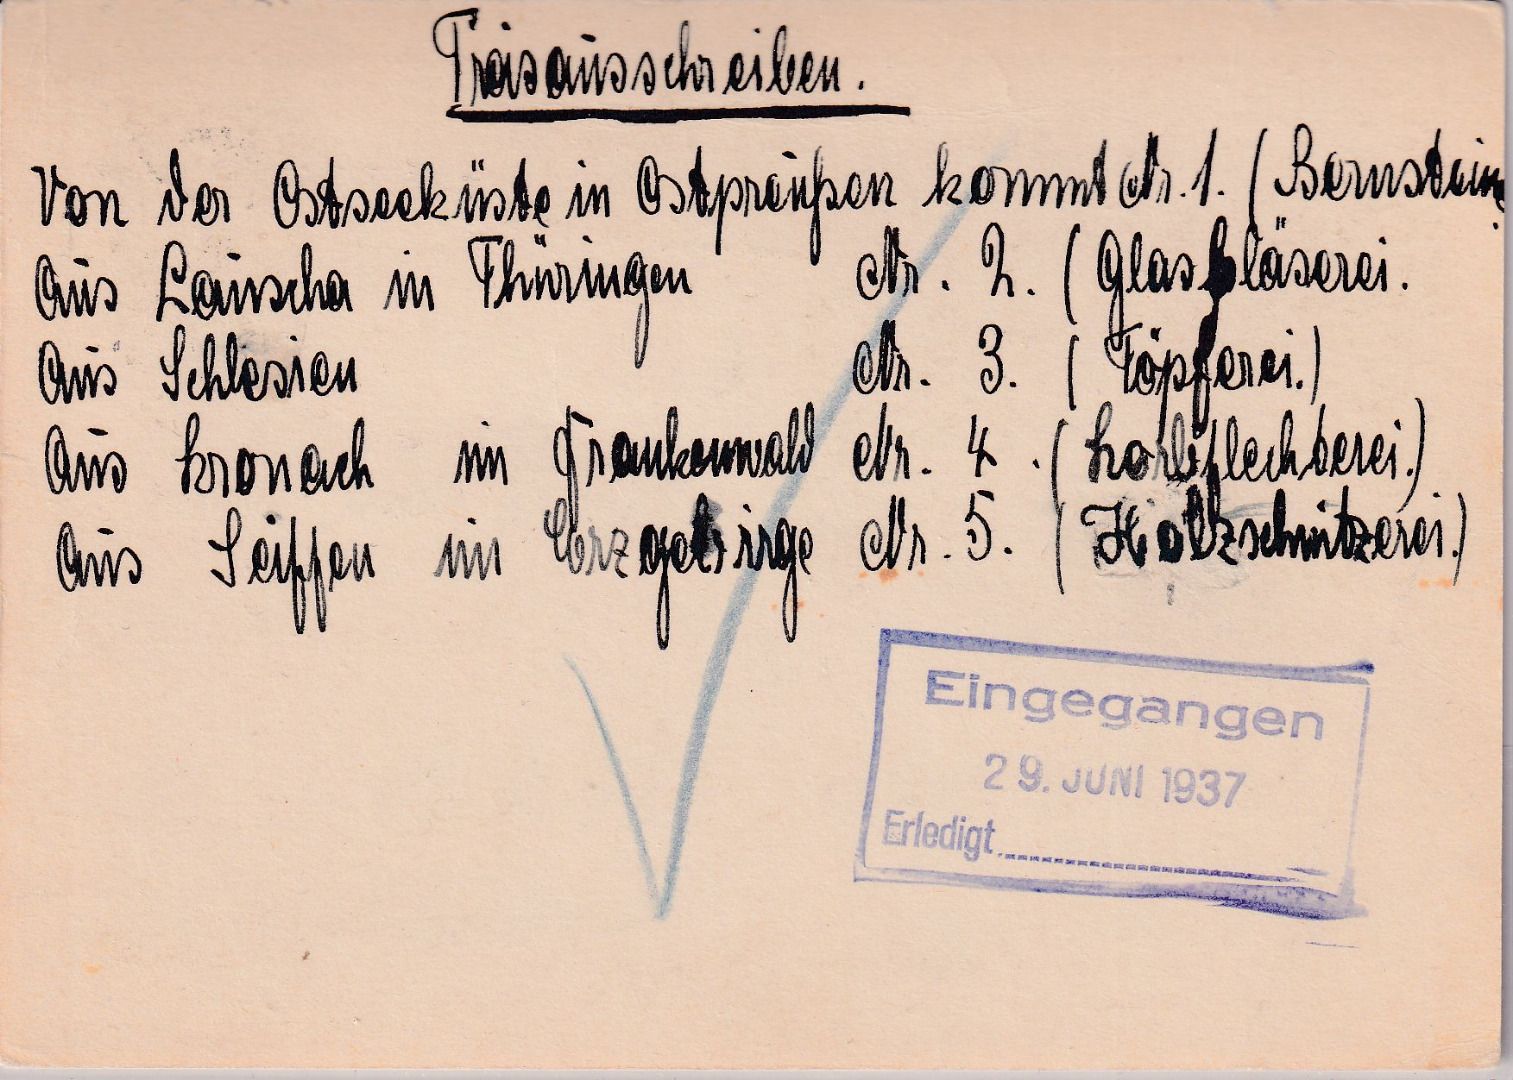 Preisausschreiben.
Von der Ostseeküste in Ostpreußen kommt Nr. 1. (Bernstein
Aus Lauscha in Thüringen Nr. 2. (Glasbläserei.
Aus Schlesien Nr. 3. (Töpferei.)
Aus Kronach im Frankenwald Nr. 4. (Korbflechterei.)
Aus Seiffen im Erzgebirge Nr. 5. (Holzschnitzerei.)
Eingegangen
29. JUNI 1937
Erledigt